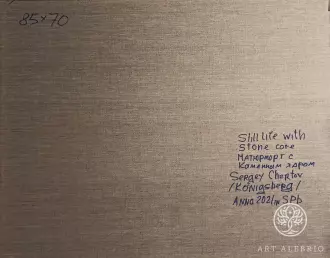 85x70
Still life with
Stone core
Натюрморт с
Каменным ядром
Sergey Chertov
/Königsberg/
Anno 2021 SPb
ART ALEBRIO